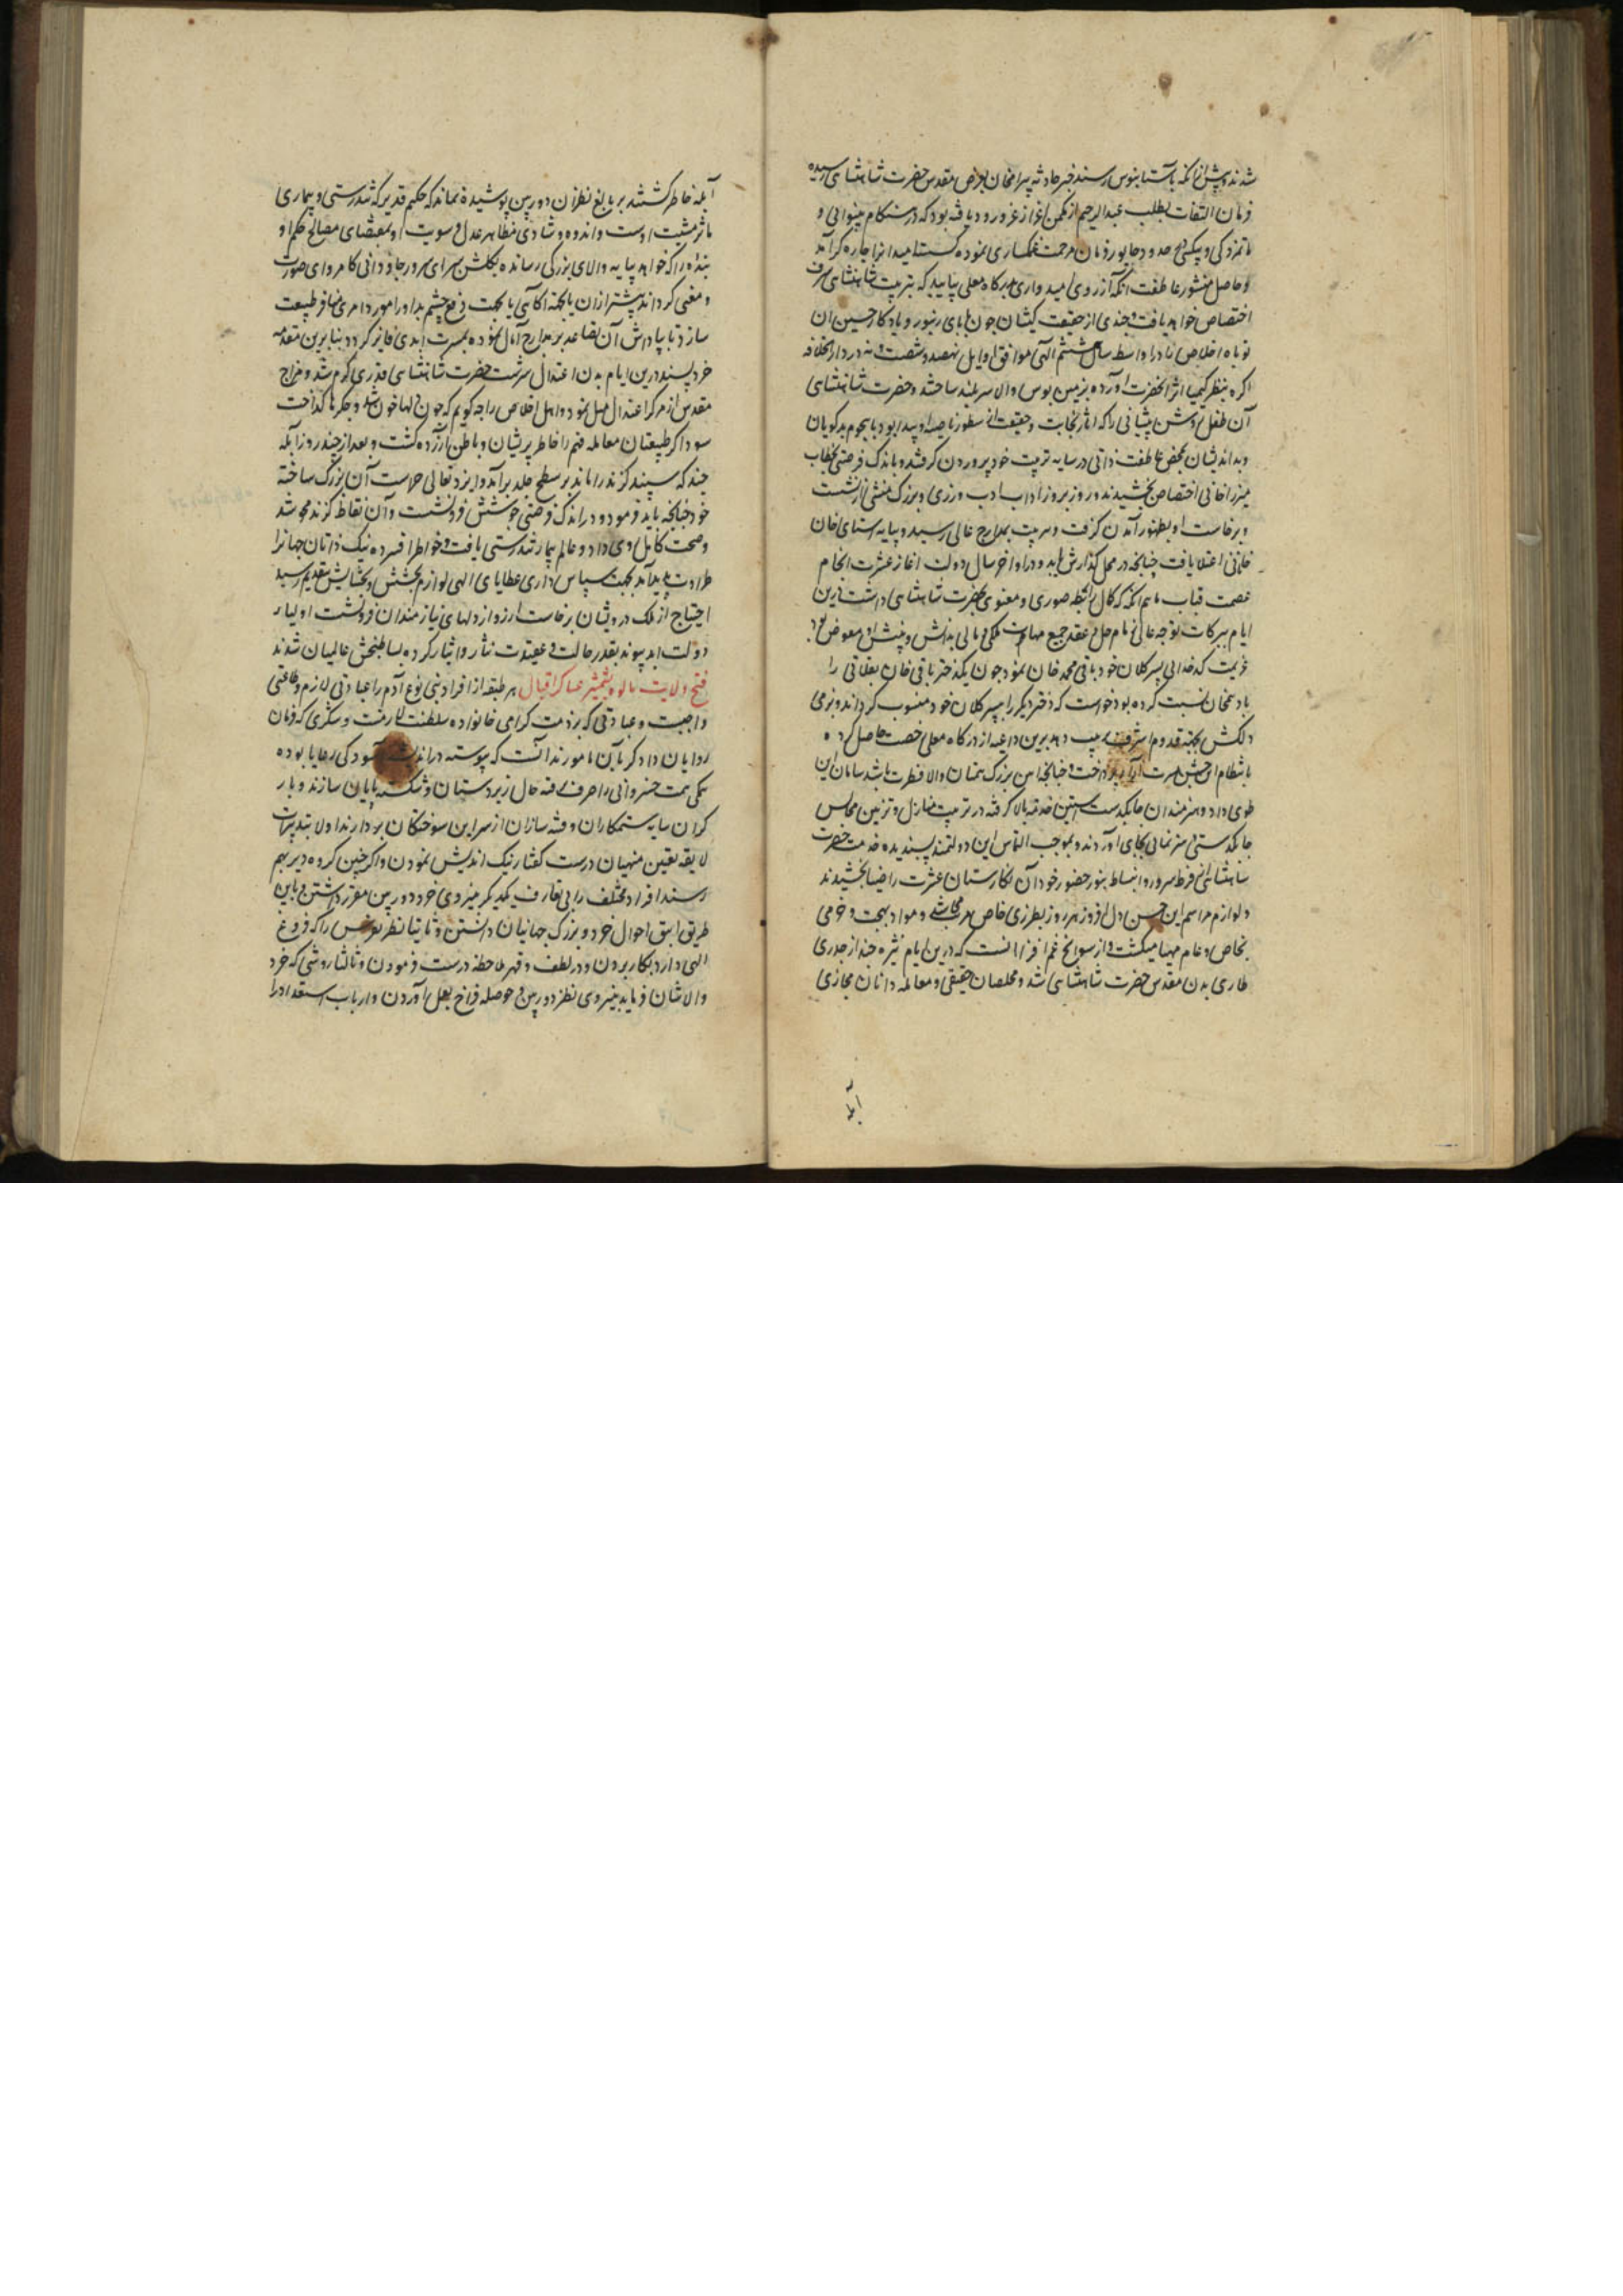 شدند و پیش از آنکه باستانبوس رسند خبر حادثه بیرامخان بعرض مقدس حضرت شاهنشاهی رسیده
فرمان التفات بطلب عبدالرحیم از مکمن اعزاز عز ورود یافته بود که در هنگام بینوایی و
حدود جالور فرمان مرحمت غمگساری نموده گسسته امیدانرا چاره گر آمد
و حاصل منشور عاطفت آنکه از روی امیدواری بدرگاه معلی بیاید که بتربیت شاهنشاهی شرف
اختصاص خواهد یافت و چندی از حقیقت کیشان چون بابای زنبور و یادگار حسین آن
نوباوه اخلاص را در اواسط سال ششم الهی موافق اوایل نهصد و شصت و نه در دار الخلافه
اگره بنظر کیمیا اثر آنحضرت آورده بزمین بوس والا سربلند ساختند و حضرت شاهنشاهی
آن طفل روشن پیشانی را که آثار نجابت و حقیقت از سطور ناصیه او پیدا بود با هجوم بدگویان
و بداندیشان بمحض عاطفت ذاتی در سایه تربیت خود پروردن گرفتند و باندک فرصتی بخطاب
میرزا خانی اختصاص بخشیدند و روز بروز آداب ادب ورزی و بزرگ منشی از نشست
و برخاست او بظهور آمدن گرفت و بتربیت بمدارج عالی رسید و پایه والای خان
خانانی اعتلا یافت چنانچه در محل گذارش یابد و در اواخر سال دولت آغاز عشرت انجام
عصمت قباب ماهم انکه که کمال رابطه صوری و معنوی بحضرت شاهنشاهی داشت و درین
ایام ببرکات توجه عالی زمام حل و عقد جمیع مهمات ملکی و مالی بدانش و بینش او مفوض بود
عزیمت کدخدایی پسر کلان خود باقی محمد خان نمود چون یکدختر باقی خان بقلانی را
بادهم خان نسبت کرده بود خواست که دختر دیگر را بپسر کلان خود منسوب گرداند و بزمی
دلکش بجهة قدوم اشرف ترتیب دهد برین داعیه از درگاه معلی رخصت حاصل کرده
بانتظام این جشن عشرت آرا پرداخت و چنانچه آیین بزرگ همتان والا فطرت باشد سامان این
طوی داد و هنرمندان چابکدست آستین خدمت بالا گرفته در ترتیب منازل و تزیین مجالس
چابکدستی و هنر نمایی بجای آوردند و بموجب التماس این دولتمند پسندیده خدمت حضرت
شاهنشاهی از فرط سرور و انبساط بنور حضور خود آن نگارستان عشرت را ضیا بخشیدند
و لوازم مراسم این جشن دل افروز هر روز بطرزی خاص مرتب و مواد بهجت و خرمی
بخاص و عام مهیا میگشت و از سوانح غم افزا آنست که درین ایام بثره چند از جدری
طاری بدن مقدس حضرت شاهنشاهی شد و مخلصان حقیقی و معامله دانان مجازی
آبله
آبله خاطر گشتند بر بالغ نظران دوربین پوشیده نماند که حکیم قدیر که تندرستی و بیماری
مآثر مشیت اوست و اندوه و شادی مظاهر عدل و سویت او بمقتضای مصالح حکم او
بنده را که خواهد بپایه والای بزرگی رسانده بگلشن سرای سرور جاودانی کامروای صورت
و معنی گرداند پیشتر از آن یا بجهة آگاهی یا بجهت دفع چشم بد او را مورد امری منافر طبیعت
سازد تا بپاداش آن تصاعد بر مدارج آمال نموده بمسرت ابدی فایز گردد بنا برین مقدمه
خرد پسند درین ایام بدن اعتدال سرشت حضرت شاهنشاهی قدری گرم شد و مزاج
مقدس از مرکز اعتدال میل نمود و اهل اخلاص را چه گویم که چون دلها خون شد و جگرها گداخت
سوداگر طبیعتان معامله فهم را خاطر پریشان و باطن آزرده گشت و بعد از چند روز آبله
چند که سپند گزند را ماند بر سطح جلد برآمد و ایزد تعالی حراست آن بزرگ ساخته
خود چنانچه باید فرمود و در اندک فرصتی جوشش فرو نشست و آن نقاط گزند محو شد
و صحت کامل روی داد و عالم بیمار تندرستی یافت و خواطر افسرده نیک ذاتان جهانرا
طراوت پدید آمد بجهت سپاس داری عطایای الهی لوازم بخشش و بخشایش بتقدیم رسید
احتیاج از ملک درویشان برخاست آرزو از دلهای نیازمندان فرو نشست اولیاء
دولت ابد پیوند بقدر حالت و عقیدت نثار و ایثار کرده بساط بخش عالمیان شدند
فتح ولایت مالوه بشمشیر عساکر اقبال هر طبقه از افراد بنی نوع آدم را عبادتی لازم و طاعتی
واجبست و عبادتی که بر ذمت گرامی خانواده سلطنت و لشکری که فرمان
روایان دادگر بآن مامورند آنست که پیوسته در اندیشه آسودگی رعایا بوده
همگی همت خسروانی را صرف رفته حال زیردستان و شکسته پایان سازند و بار
گران سایه ستمکاران و فتنه سازان از سر این سوختگان بردارند اولا بتدبیرات
لایقه یقین منهیان درست گفتار نیک اندیش نمودن و اگر چنین گروه دیر بهم
رسند افراد مختلف را بی تعارف یکدیگر بنیروی خرد دوربین مقرر داشتن و باین
طریق انیق احوال خرد و بزرگ جهانیان دانستن و ثانیا نظر را که فروغ
الهی دارد بکار بردن و در لطف و قهر ملاحظه درست فرمودن و ثالثا روشی که خرد
والا نشان فرماید بنیروی نظر دوربین و حوصله فراخ بعمل آوردن و ارباب استعداد را